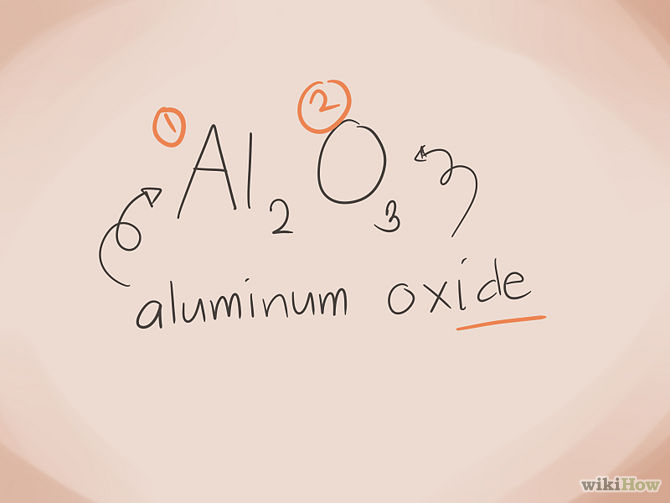 1 2
Al2 O3
aluminum oxide
wikiHow